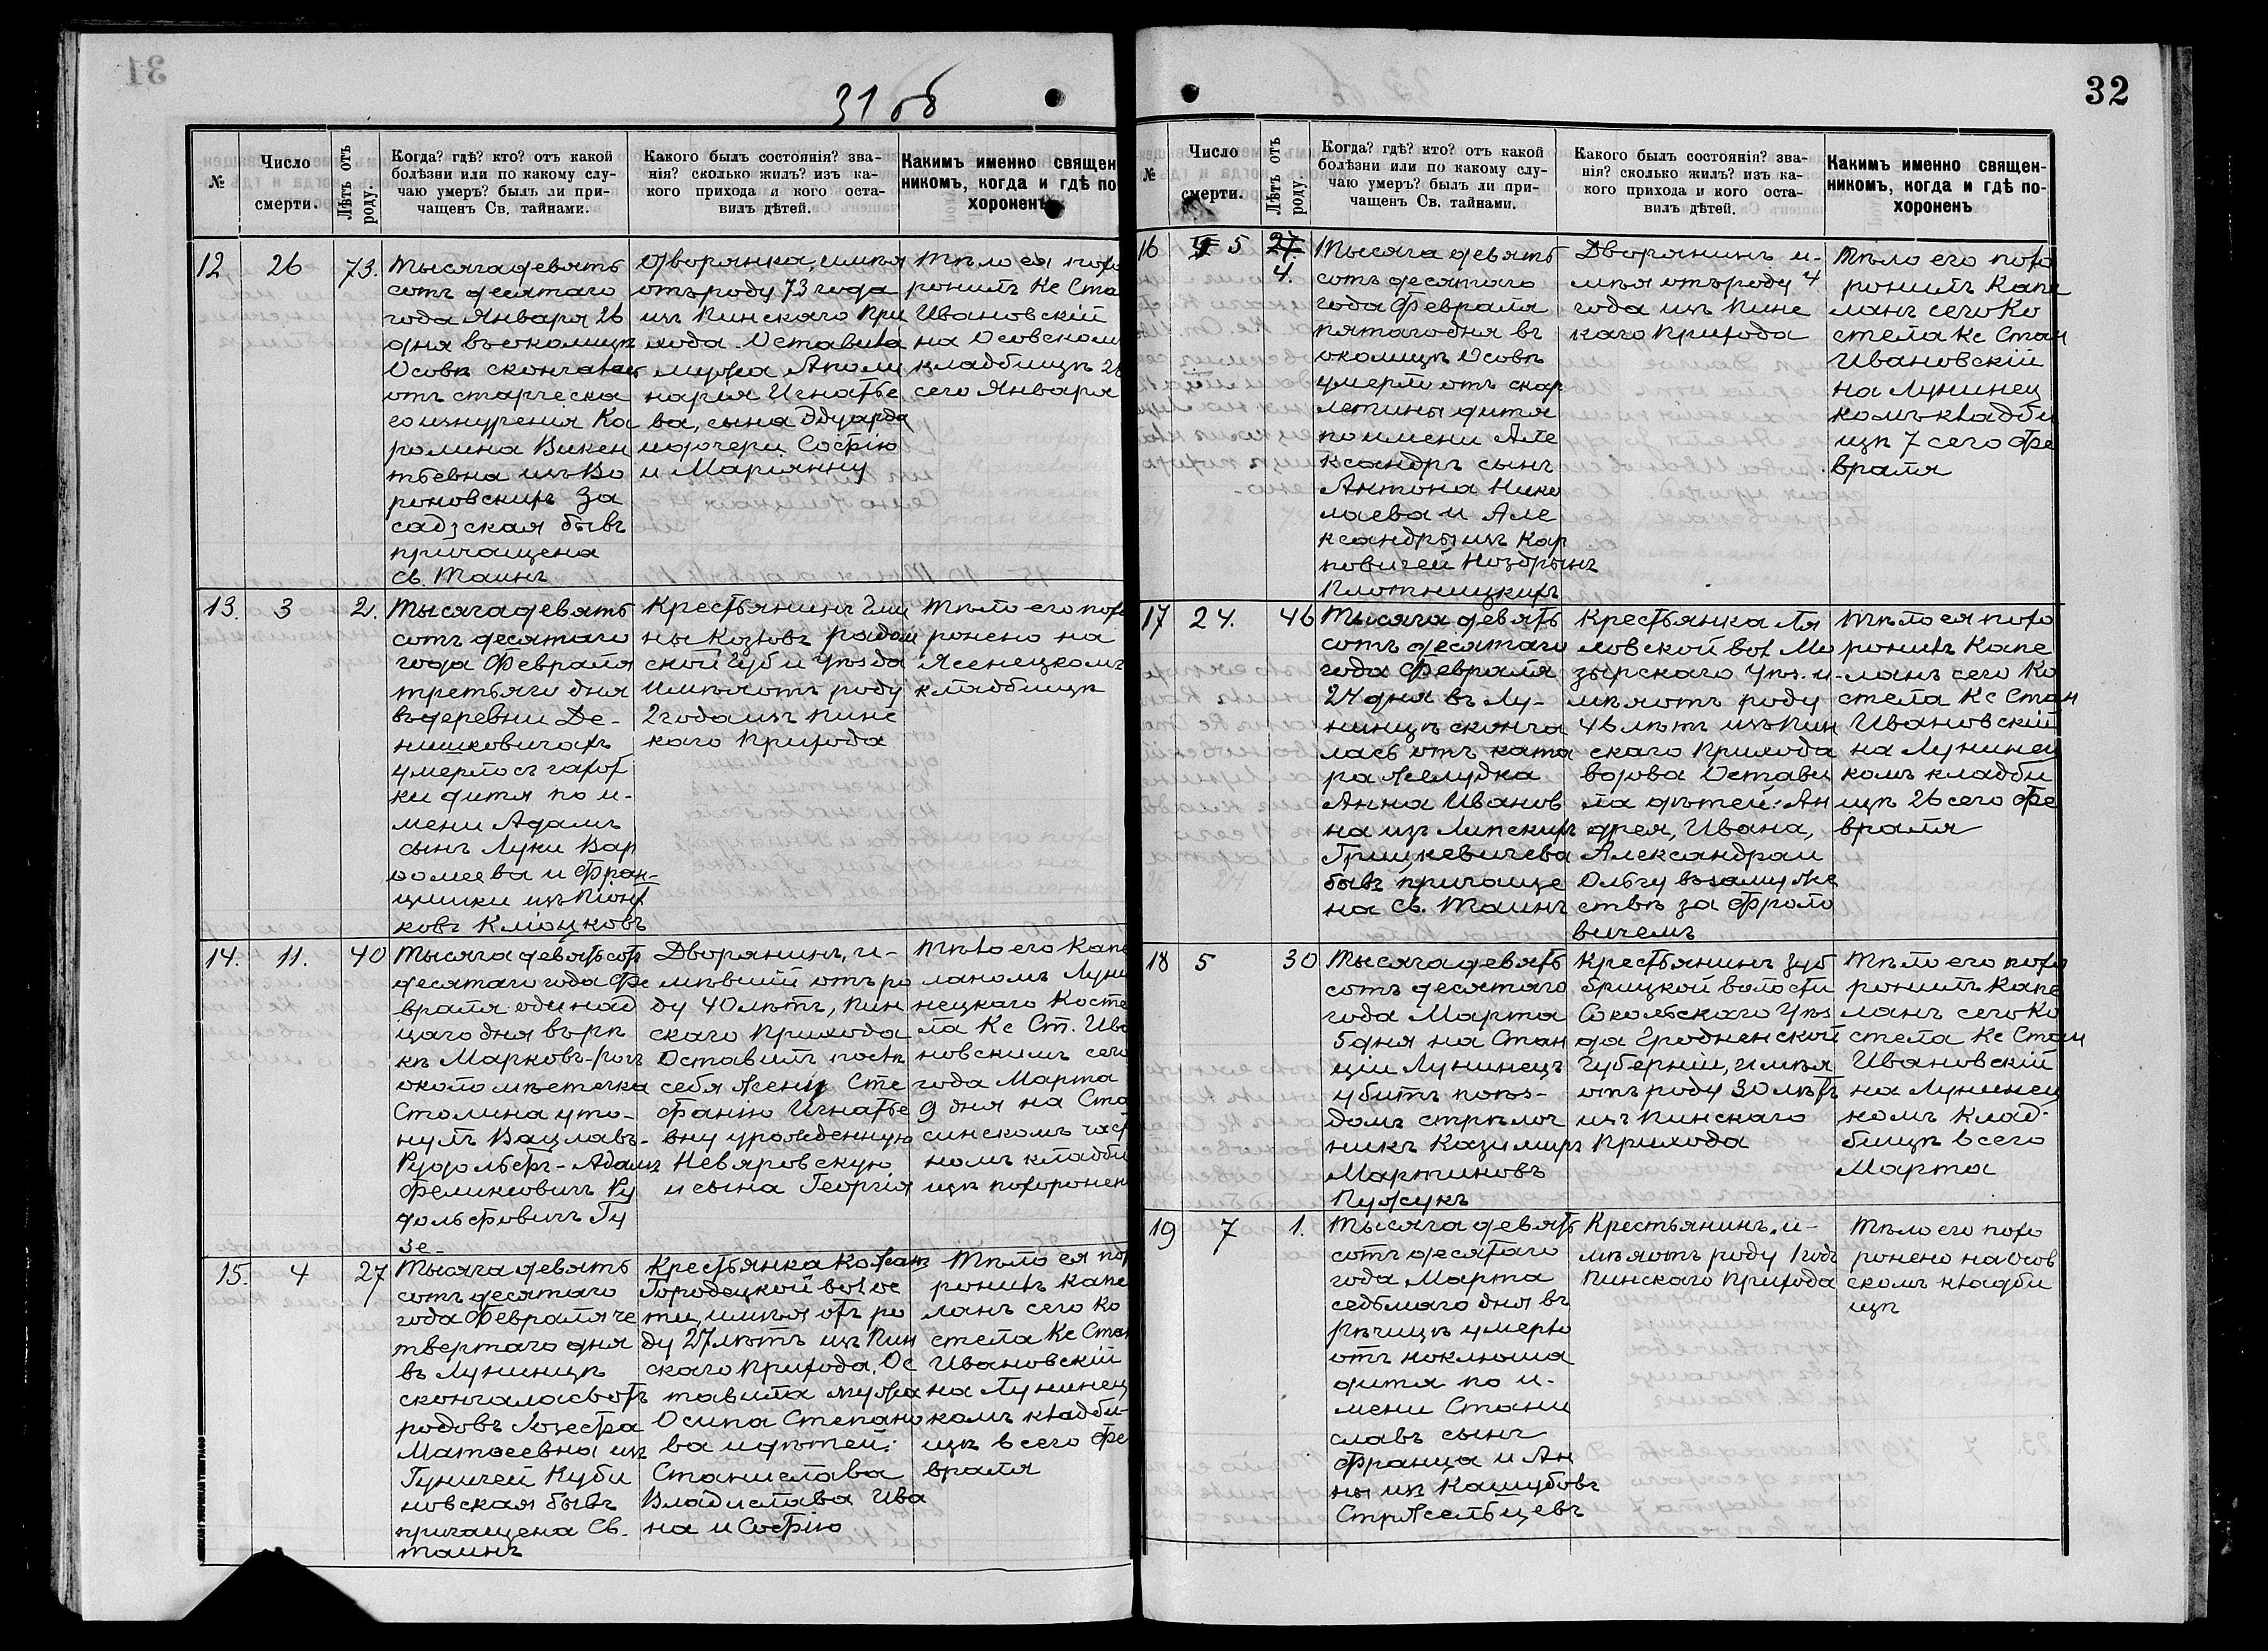 31 об
№
Число
смерти.
Лѣтъ отъ
роду.
Когда? гдѣ? кто? отъ какой
болѣзни или по какому слу-
чаю умеръ? былъ ли при-
чащенъ Св. тайнами.
Какого былъ состоянія? зва-
нія? сколько жилъ? изъ ка-
кого прихода и кого оста-
вилъ дѣтей.
Какимъ именно священ
никомъ, когда и гдѣ по
хороненъ
12
26
73.
Тысяча девять
сотъ десятаго
года Января 26
дня въ околицѣ
Осовѣ скончалась
отъ старческа
го изнуренія Ка
ролина Викен
тьевна изъ Во
роновскихъ За
садзская бывъ
причащена
Св. Таинъ
Дворянка, имѣя
отъ роду 73 года
изъ Пинскаго При
хода. Оставила
мужа Аполи
нарія Игнатье
ва, сына Эдуарда
и дочери Софію
и Маріянну
Тѣло ея похо
ронилъ Кс Ста
Ивановскій
на Осовском
кладбищѣ 28
сего Января
13.
3
2.
Тысяча девять
сотъ десятаго
года Февраля
третьяго дня
въ деревни Де-
нисковичахъ
умерло съ чахот
ки дитя по и-
мени Адамъ
сынъ Луки Вар
ѳомеева и Фран-
цишки изъ Піонт
ковъ Кліоцковъ
Крестьянинъ Гми
ны Козловъ радом
ской Губ и Уѣзда
имѣя отъ роду
2 года изъ Пинс
каго Прихода
Тѣло его похо
ронено на
Ясенецкомъ
кладбищѣ
14.
11.
40
Тысяча девятьсотъ
десятаго года Фе
враля одинад
цаго дня въ рѣ
кѣ
около мѣстечка
Столина уто-
нулъ Вацлавъ-
Рудольфъ-Адамъ
Феликсовичъ Ру
дольфовичъ Гу
зе-
Дворянинъ, и-
мѣвшій отъ ро
ду 40 лѣтъ, Пин
скаго Прихода
Оставилъ послѣ
себя жену Сте
фанію Игнатье
вну урожденную
Невяровскую
и сына Георгія
Тѣло его Капе
ланомъ Луни
нецкаго Косте
ла Кс Ст. Ива
новскимъ сего
года Марта
9 дня на Ста
синскомъ част
номъ кладби
щѣ похоронен
15.
4
27
Тысяча девять
сотъ десятаго
года Февраля че
твертаго дня
въ Лунинцѣ
скончалась отъ
родовъ Юзефа
Матѳеевна изъ
Гуничей Куби
новская бывъ
причащена Св.
таинъ
Крестьянка Кожанъ
Городецкой волос
ти, имѣя отъ ро
ду 27 лѣтъ изъ Пин
скаго Прихода. Ос
тавила мужа
Осипа Степано
ва и дѣтей:
Станислава
Владислава Ива
на и Софію
Тѣло ея похо
ронилъ Капе
ланъ сего Ко
стела Кс Стан
Ивановскій
на Лунинец
комъ кладби-
щѣ 6 сего Фе
враля
32
№
Число
смерти.
Лѣтъ отъ
роду
Когда? гдѣ? кто? отъ какой
болѣзни или по какому слу-
чаю умеръ? былъ ли при-
чащенъ Св. тайнами.
Какого былъ состоянія? зва-
нія? сколько жилъ? изъ ка-
кого прихода и кого оста-
вилъ дѣтей.
Какимъ именно священ-
никомъ, когда и гдѣ по-
хороненъ
16
5
27.
4.
Тысяча девять
сотъ десятаго
года Февраля
пятаго дня въ
околицѣ Осовѣ
умерло отъ скар
летины дитя
по имени Але
ксандръ сынъ
Антона Нико
лаева и Але
ксандры изъ Кар
повичей Ноздрынъ
Плотницкихъ
Дворянинъ и-
мѣя отъ роду 4
года изъ Пинс
каго Прихода
Тѣло его похо
ронилъ Капе
ланъ сего Ко
стела Кс Стан
Ивановскій
на Лунинец
комъ кладби
щѣ 7 сего Фе
враля
17
24.
46
Тысяча девять
сотъ десятаго
года Февраля
24 дня въ Лу-
нинцѣ сконча
лась отъ ката
ра желудка
Анна Иванов
на изъ Липскихъ
Грицкевичева
бывъ причаще
на Св. Таинъ
Крестьянка Ля
ховской вол Мо
зырскаго Уѣз. и-
мѣя отъ роду
46 лѣтъ изъ Пин
скаго Прихода
вдова Остави
ла дѣтей: Ан
дрея, Ивана,
Александра и
Ольгу въ замуже
ствѣ за Фроло
вичемъ
Тѣло ея похо
ронилъ Капе
ланъ сего Ко
стела Кс Стан
Ивановскій
на Лунинец
комъ кладби
щѣ 26 сего Фе
враля
18
5
30
Тысяча девять
сотъ десятаго
года Марта
5 дня на Стан
ціи Лунинецъ
убитъ поѣз-
домъ стрѣлоч
никъ Казимиръ
Мартиновъ
Пужукъ
Крестьянинъ Зуб
брицкой волости
Сокольскаго Уѣз
да Гродненской
Губерніи, имѣя
отъ роду 30 лѣтъ
изъ Пинскаго
Прихода
Тѣло его похо
ронилъ Капе
ланъ сего Ко
стела Кс Стан
Ивановскій
на Лунинец
комъ Клад-
бищѣ 6 сего
Марта
19
7
1.
Тысяча девять
сотъ десятаго
года Марта
седьмаго дня въ
Рѣчицѣ умерло
отъ коклюша
дитя по и-
мени Стани
славъ сынъ
Франца и Ан
ны изъ Кашубовъ
Стржельцевъ
Крестьянинъ, и-
мѣя отъ роду 1 годъ
Пинскаго Прихода
Тѣло его похо
ронено на Осов
скомъ кладби
щѣ